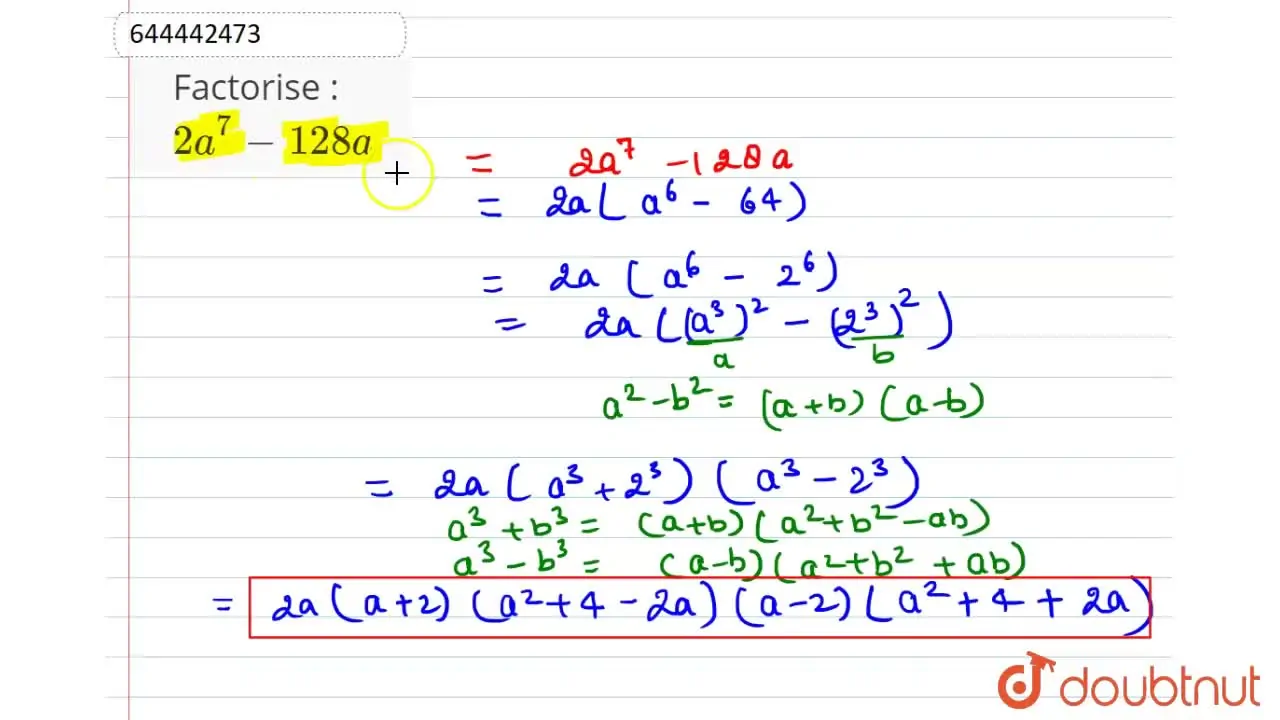 644442473
Factorise :
2a⁷ – 128a
= 2a⁷ - 128a
= 2a(a⁶ - 64)
= 2a(a⁶ - 2⁶)
= 2a((a³)² - (2³)²)
a b
a² - b² = (a+b)(a-b)
= 2a(a³ + 2³)(a³ - 2³)
a³ + b³ = (a+b)(a² + b² - ab)
a³ - b³ = (a-b)(a² + b² + ab)
= 2a(a+2)(a² + 4 - 2a)(a-2)(a² + 4 + 2a)
doubtnut